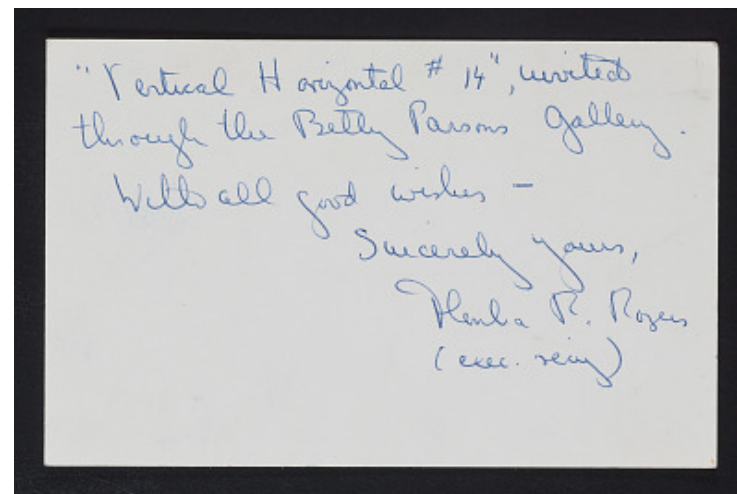 "Vertical Horizontal # 14", invited
through the Betty Parsons Gallery.
With all good wishes –
Sincerely yours,
R. Rogers
(exec. secy)